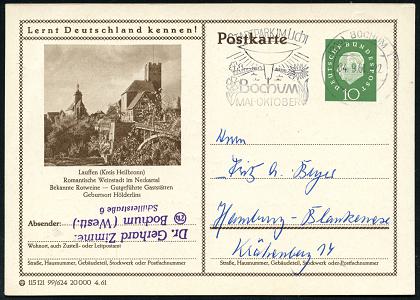 Lernt Deutschland kennen!
Postkarte
STADTPARK IM LICHT
Bochum
MAI-OKTOBER
BOCHUM
DEUTSCHE BUNDESPOST
10
Lauffen (Kreis Heilbronn)
Romantische Weinstadt im Neckartal
Bekannte Rotweine — Gutgeführte Gaststätten
Geburtsort Hölderlins
Absender:
Dr. Gerhard Zimme.
Bochum (Westf.)
Schillerstraße 6
Wohnort, auch Zustell- oder Leitpostamt
Straße, Hausnummer, Gebäudeteil, Stockwerk oder Postfachnummer
115 121 99/624 20 000 4. 61
Herrn
Fritz G. Beyer
Hamburg-Blankenese
Krähenberg 14
Straße, Hausnummer, Gebäudeteil, Stockwerk oder Postfachnummer